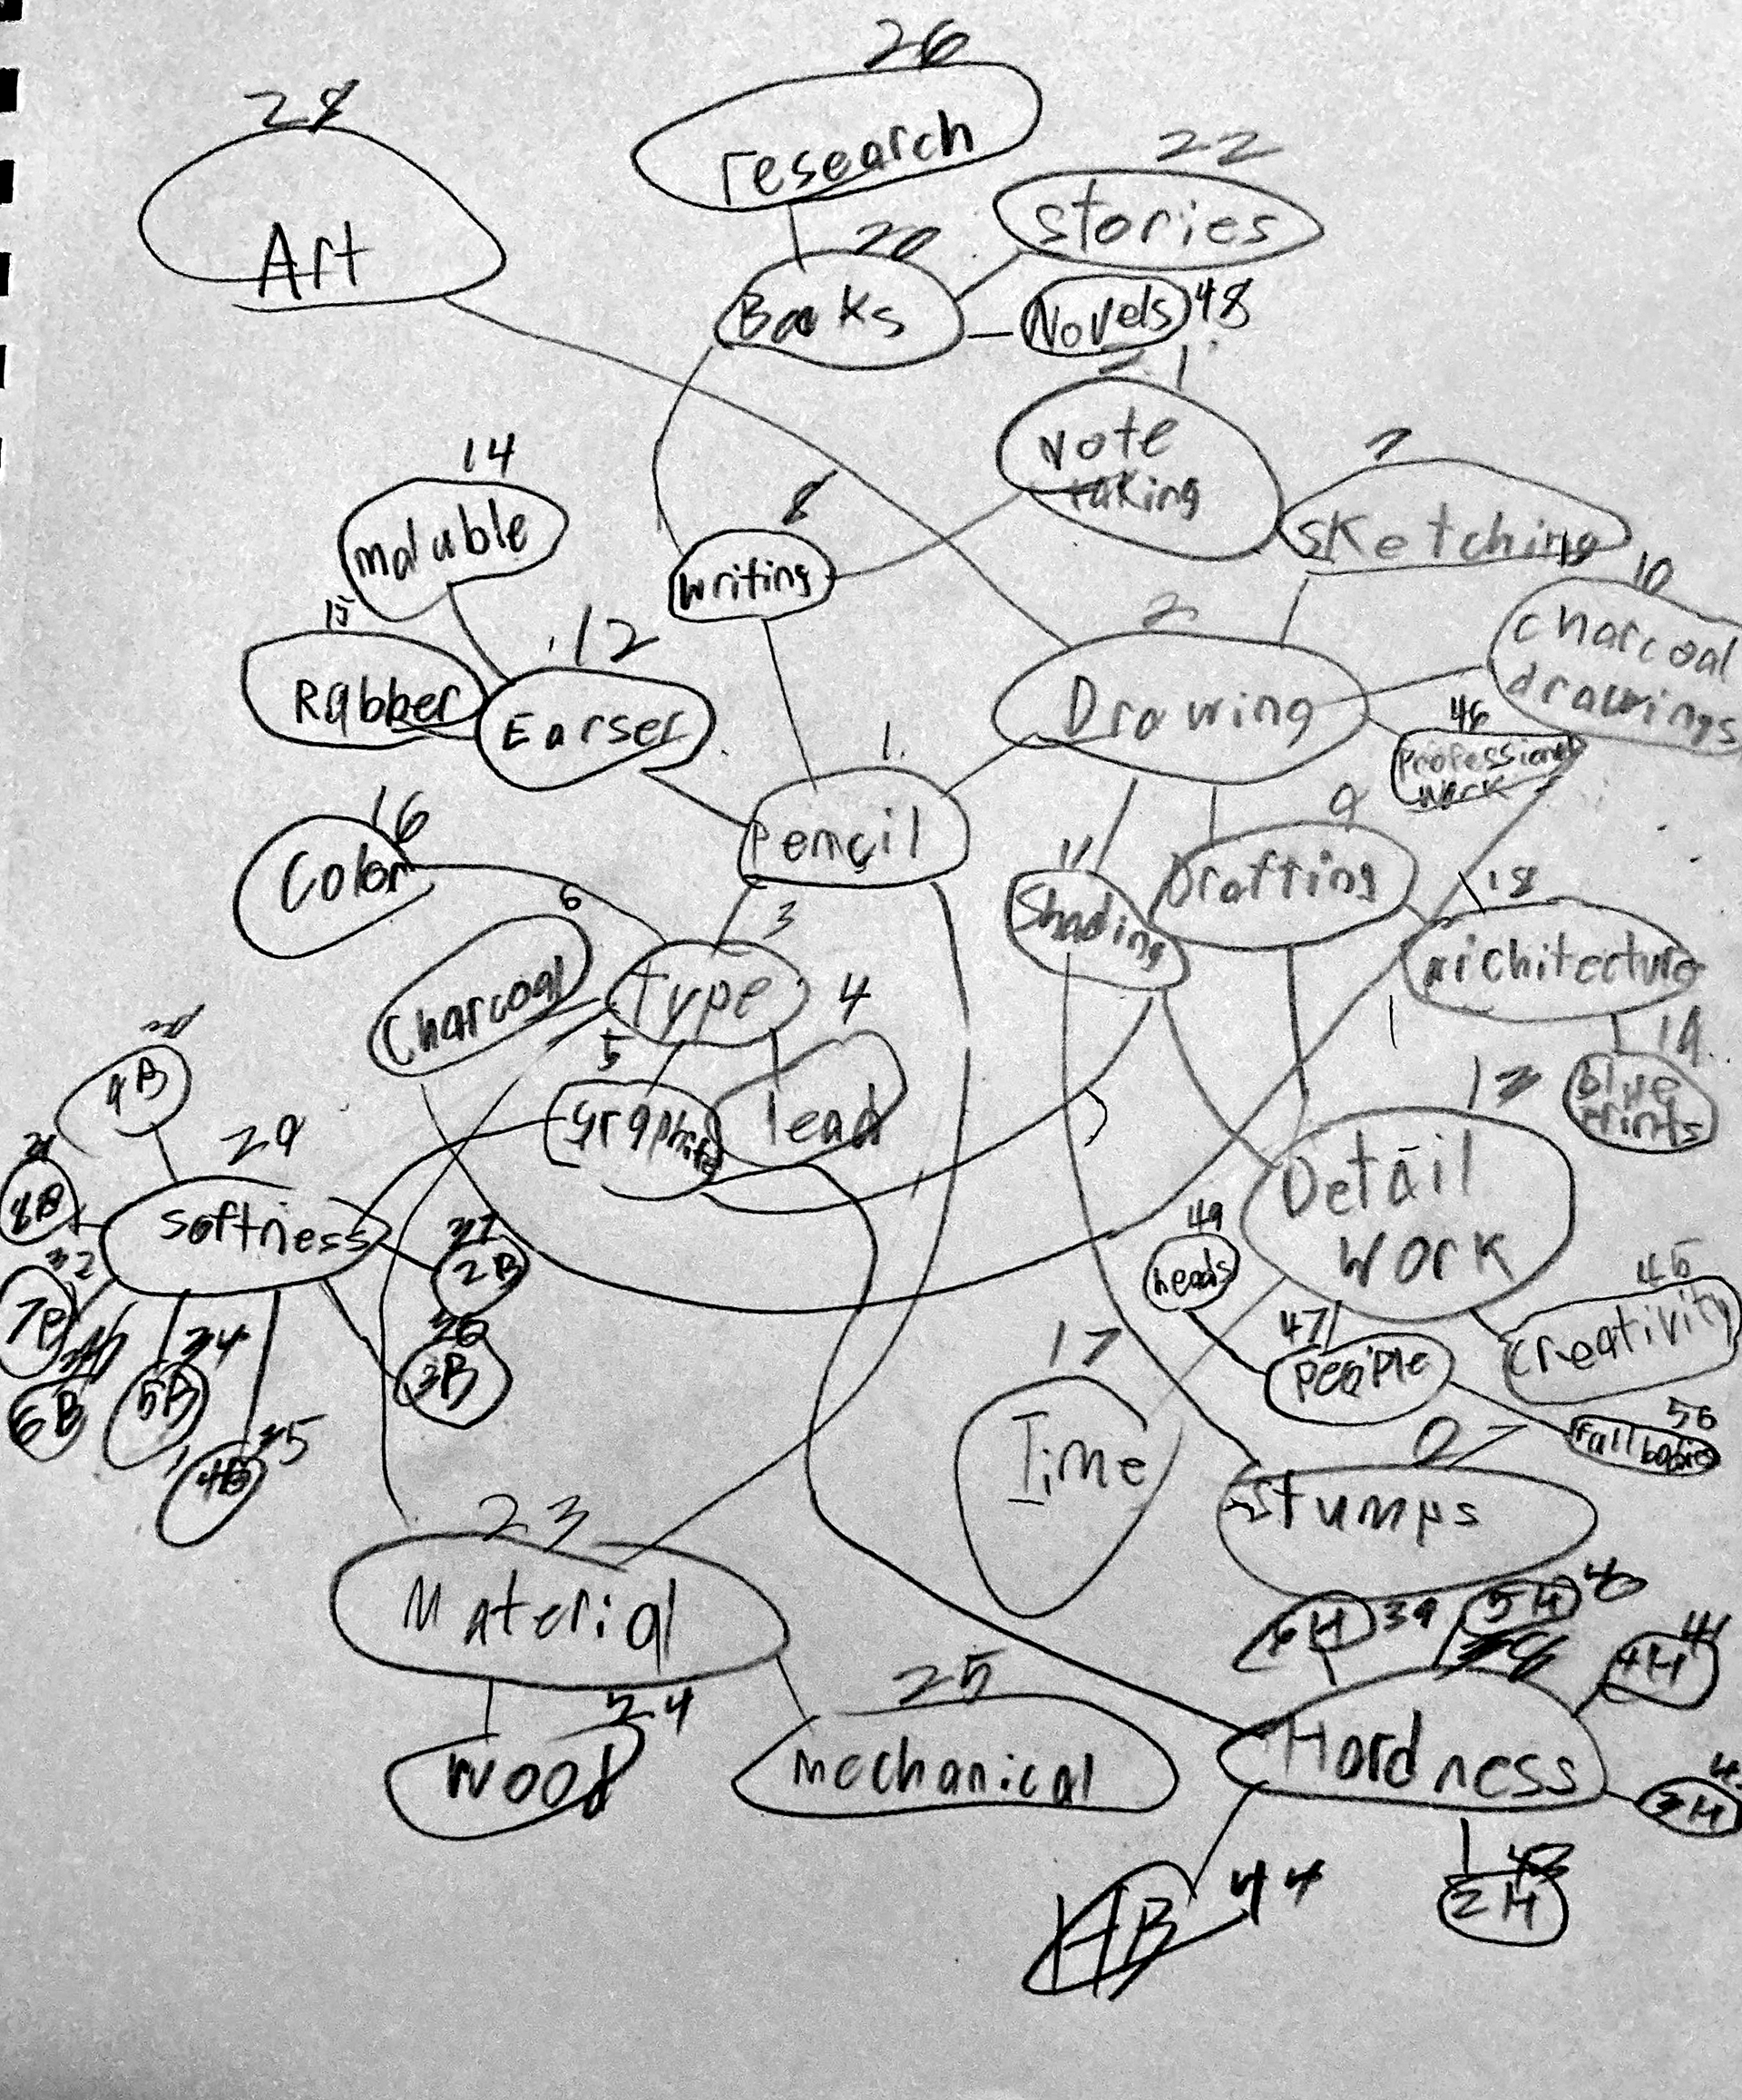 26
research
28
Art
22
stories
20
Books
Novels 48
21
Note
taking
7
sketching
14
maluble
8
writing
10
Charcoal
drawings
15
Rabber
12
Earser
2
Drawing
46
Professional
work
1.
Pencil
16
Color
9
Drafting
11
Shading
18
architecture
6
Charcoal
3
Type
4
lead
5
graphite
19
blue
Prints
9B
29
softness
8B
32
7B
6B
34
5B
35
4B
2B
3B
13
Detail
Work
49
heads
47
People
45
Creativity
50
fall bodies
17
Time
27
Stumps
23
Material
24
Wood
25
mechanical
6H 39
5H 40
4H 41
Hardness
3H
2H
HB 44